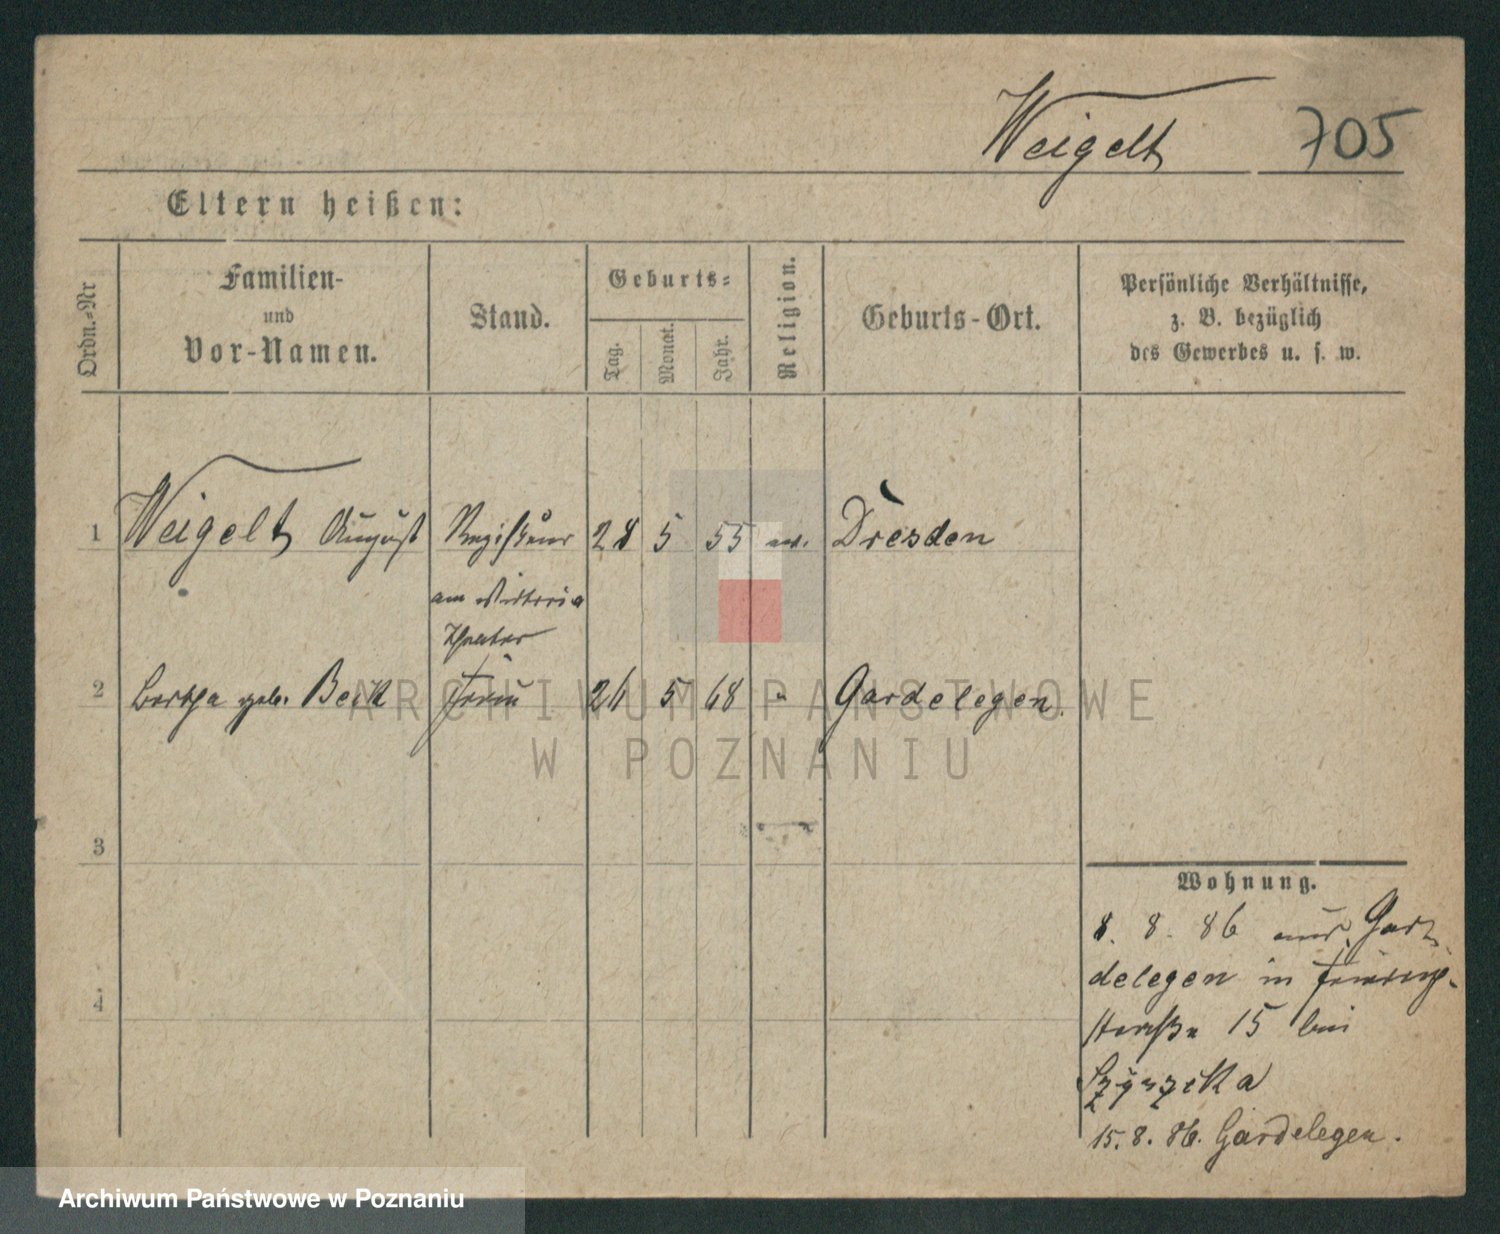 Weigelt 705
Eltern heißen:
Ordn.-Nr
Familien-
und
Vor-Namen.
Stand.
Geburts-
Tag. Monat. Jahr.
Religion.
Geburts-Ort.
Persönliche Verhältnisse,
z. B. bezüglich
des Gewerbes u. s. w.
1 Weigelt August Regisseur 28 5 55 ev. Dresden
am Victoria
Theater
2 Bertha geb. Beck Frau 26 5 68 " Gardelegen
3
4
Wohnung.
8. 8. 86 aus Gar-
delegen in
straße 15 bei
15. 8. 86. Gardelegen.
ARCHIWUM PAŃSTWOWE
W POZNANIU
Archiwum Państwowe w Poznaniu